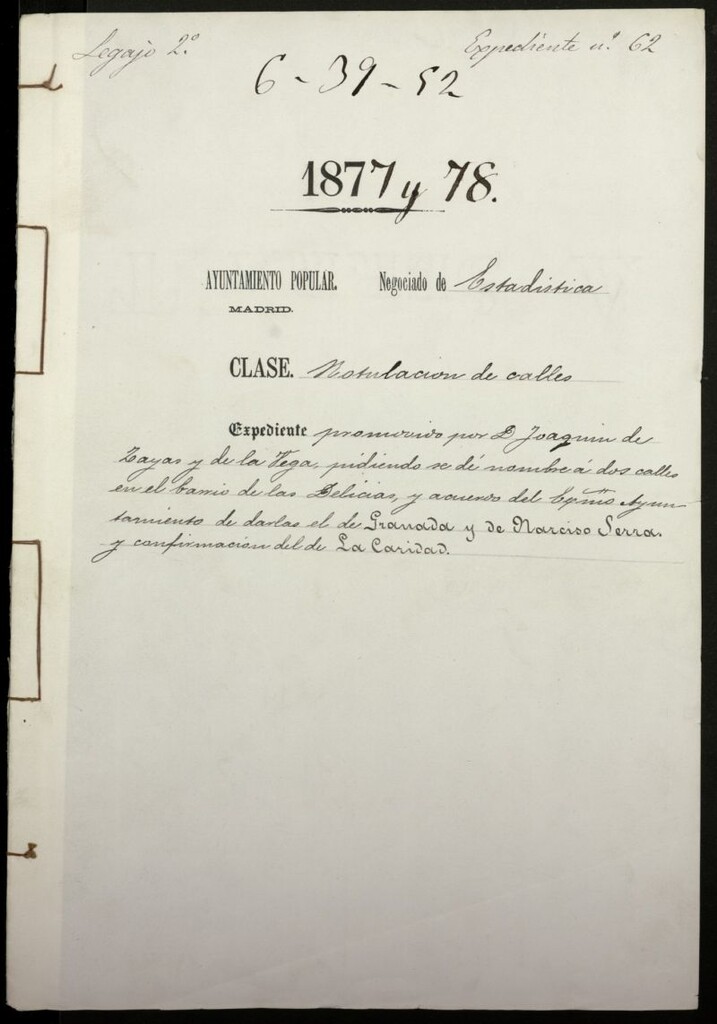 Legajo 2º
Expediente nº 62
6-39-52
1877 y 78.
AYUNTAMIENTO POPULAR. Negociado de Estadistica
MADRID.
CLASE. Rotulacion de calles
Expediente promovido por D Joaquin de
Zayas y de la Vega, pidiendo se dé nombre á dos calles
en el barrio de las Delicias, y acuerdo del Excmo Ayun
tamiento de darlas el de Granada y de Narciso Serra.
y confirmacion del de La Caridad.